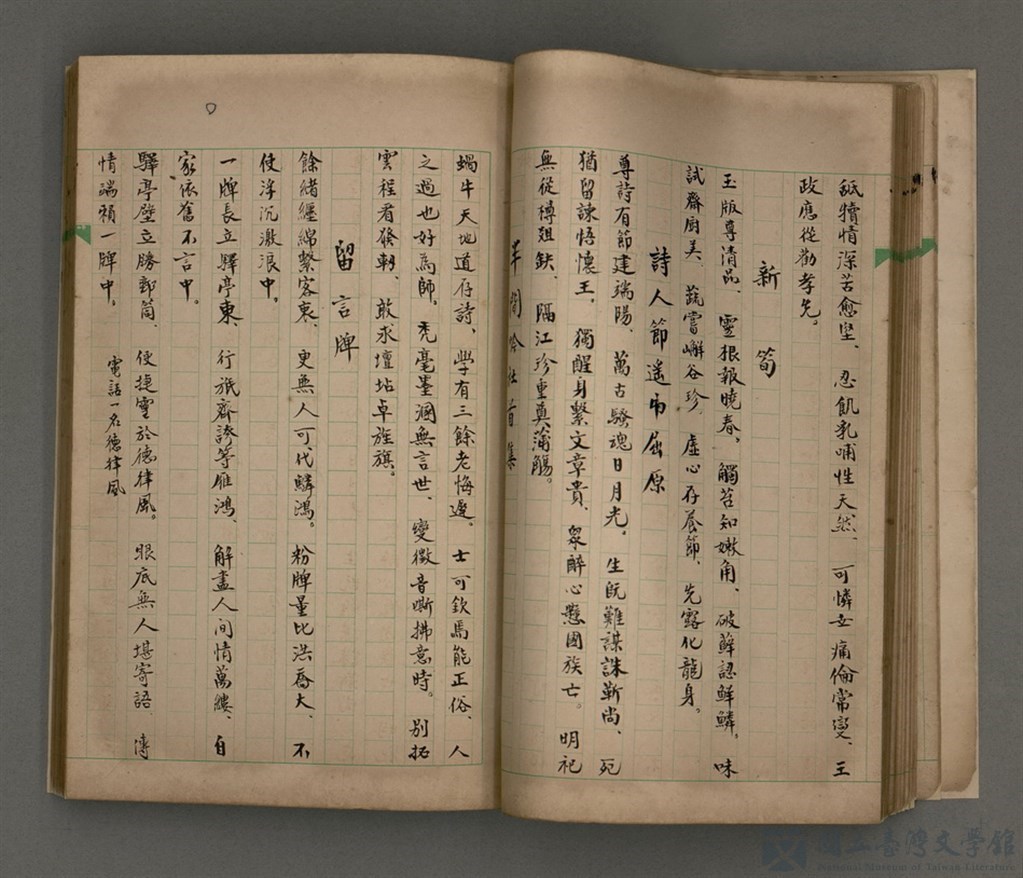 舐犢情深苦愈堅、忍飢乳哺性天然、可憐女痛倫常變、王
政應從勸孝先。
新筍
玉版尊清品、靈根報曉春。觸苔知嫩角、破蘚認鮮鱗。味
試齋厨美、蔬嘗嶰谷珍、虛心存養節、先露化龍身。
詩人節遙弔屈原
尊詩有節建端陽、萬古騷魂日月光。生既難謀誅靳尚、死
猶留諫悟懷王。獨醒身繫文章貴、眾醉心懸國族亡。明祀
無從樽俎缺、隔江珍重奠蒲觴。
半閒吟社首集
蝸牛天地道存詩、學有三餘老悔遲。士可欽焉能正俗、人
之過也好為師。禿毫墨涸無言世、變徵音嘶拂意時。別拓
雲程看發軔、敢求壇坫卓旌旗。
留言牌
餘緒纏綿繫客衷、更無人可代鱗鴻。粉牌量比洪喬大、不
使浮沉激浪中。
一牌長立驛亭東、行旅齊誇等雁鴻、解盡人间情萬縷、自
家依舊不言中。
驛亭壁立勝郵筒、便捷靈於德律風。眼底無人堪寄語、傳
情端賴一牌中。
電話一名德律風
國立臺灣文學館
National Museum of Taiwan Literature